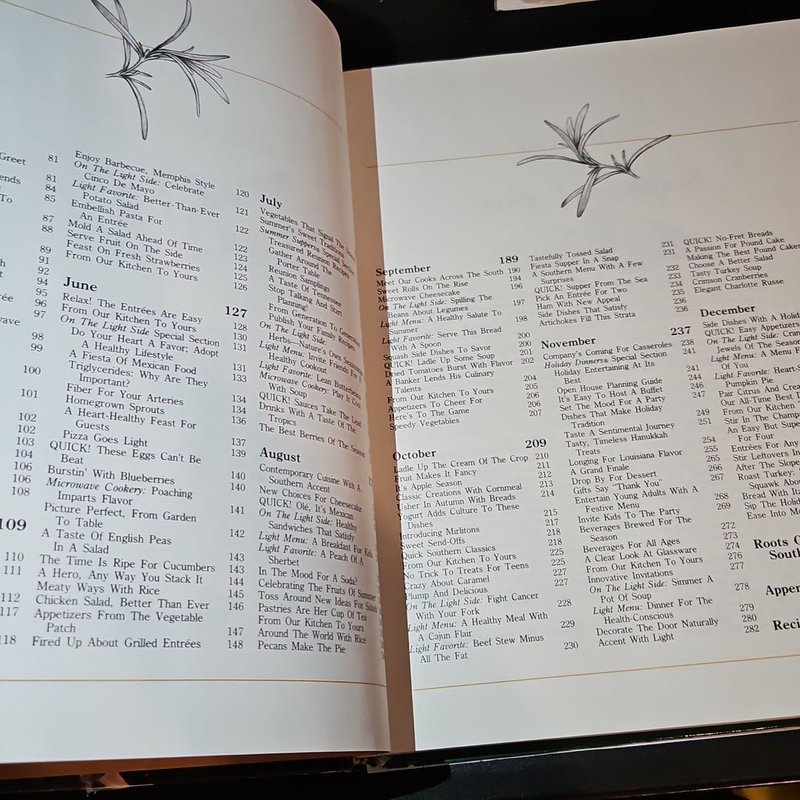 Greet 81
ends 81
84
To
87
88
89
h 91
t 92
94
rée 95
s 96
97
wave
98
99
100
101
102
102
103
104
106
106
108
109
110
111
112
117
118
Enjoy Barbecue, Memphis Style 120
On The Light Side: Celebrate
Cinco De Mayo 121
Light Favorite: Better-Than-Ever
Potato Salad 122
Embellish Pasta For
An Entrée 122
Mold A Salad Ahead Of Time 123
Serve Fruit On The Side 124
Feast On Fresh Strawberries 125
From Our Kitchen To Yours 126
June 127
Relax! The Entrées Are Easy 128
From Our Kitchen To Yours 129
On The Light Side Special Section
Do Your Heart A Flavor; Adopt
A Healthy Lifestyle 131
A Fiesta Of Mexican Food 131
Triglycerides: Why Are They
Important? 133
Fiber For Your Arteries 134
Homegrown Sprouts 134
A Heart-Healthy Feast For
Guests 134
Pizza Goes Light 137
QUICK! These Eggs Can't Be 139
Beat
Burstin' With Blueberries 140
Microwave Cookery: Poaching 140
Imparts Flavor
Picture Perfect, From Garden 141
To Table
A Taste Of English Peas 142
In A Salad
The Time Is Ripe For Cucumbers 143
A Hero, Any Way You Stack It 143
Meaty Ways With Rice 144
Chicken Salad, Better Than Ever 145
Appetizers From The Vegetable 146
Patch 147
Fired Up About Grilled Entrées 148
July
Vegetables That Signal The
Summer's Sweet Traditions
Summer Suppers Special Section
Treasured Reunion Recipes
Gather Around The
Porter Table
Reunion Samplings
A Taste Of Tennessee
Stop Talking And Start
Planning!
From Generation To Generation
Publish Your Family Recipes
On The Light Side:
Herbs—Nature's Own
Light Menu: Invite Friends For A
Healthy Cookout
Light Favorite: Lean Butterbeans
Microwave Cookery: Play It Cool
With Soup
QUICK! Sauces Take The Lead
Drinks With A Taste Of The
Tropics
The Best Berries Of The Season
August
Contemporary Cuisine With A
Southern Accent
New Choices For Cheesecake
QUICK! Olé, It's Mexican
On The Light Side: Healthy
Sandwiches That Satisfy
Light Menu: A Breakfast For Kids
Light Favorite: A Peach Of A
Sherbet
In The Mood For A Soda?
Celebrating The Fruits Of Summer
Toss Around New Ideas For Salads
Pastries Are Her Cup Of Tea
From Our Kitchen To Yours
Around The World With Rice
Pecans Make The Pie
September 189
Meet Our Cooks Across The South 190
Sweet Rolls On The Rise 194
Microwave Cheesecake 196
On The Light Side: Spilling The
Beans About Legumes 197
Light Menu: A Healthy Salute To
Summer 200
Light Favorite: Serve This Bread
With A Spoon 200
Squash Side Dishes To Savor 200
QUICK! Ladle Up Some Soup 201
Dried Tomatoes Burst With Flavor 202
A Banker Lends His Culinary
Talents 204
From Our Kitchen To Yours 205
Appetizers To Cheer For 206
Here's To The Game 206
Speedy Vegetables 207
October 209
Ladle Up The Cream Of The Crop 210
Fruit Makes It Fancy 211
It's Apple Season 212
Classic Creations With Cornmeal 213
Usher In Autumn With Breads 214
Yogurt Adds Culture To These
Dishes 215
Introducing Mirlitons 217
Sweet Send-Offs 218
Quick Southern Classics 218
From Our Kitchen To Yours 225
No Trick To Treats For Teens 225
Crazy About Caramel 227
Plump And Delicious 227
On The Light Side: Fight Cancer
With Your Fork 228
Light Menu: A Healthy Meal With
A Cajun Flair 229
Light Favorite: Beef Stew Minus
All The Fat 230
Tastefully Tossed Salad 231
Fiesta Supper In A Snap 231
A Southern Menu With A Few
Surprises 232
QUICK! Supper From The Sea 234
Pick An Entrée For Two 235
Ham With New Appeal 236
Side Dishes That Satisfy 236
Artichokes Fill This Strata
November 237
Company's Coming For Casseroles 238
Holiday Dinners Special Section 241
Holiday Entertaining At Its
Best 241
Open House Planning Guide 244
It's Easy To Host A Buffet 246
Set The Mood For A Party 247
Dishes That Make Holiday
Tradition 249
Taste A Sentimental Journey 251
Tasty, Timeless Hanukkah
Treats 254
Longing For Louisiana Flavor 255
A Grand Finale 265
Drop By For Dessert 266
Gifts Say "Thank You" 267
Entertain Young Adults With A
Festive Menu 268
Invite Kids To The Party 269
Beverages Brewed For The
Season 272
Beverages For All Ages 273
A Clear Look At Glassware 274
From Our Kitchen To Yours 276
Innovative Invitations 277
On The Light Side: Simmer A
Pot Of Soup 278
Light Menu: Dinner For The
Health-Conscious 279
Decorate The Door Naturally 280
Accent With Light 282
QUICK! No-Fret Breads
A Passion For Pound Cake
Making The Best Pound Cakes
Choose A Better Salad
Tasty Turkey Soup
Crimson Cranberries
Elegant Charlotte Russe
December
Side Dishes With A Holiday
QUICK! Easy Appetizers
On The Light Side:
Jewels Of The Season
Light Menu: A Menu
Of You
Light Favorite: Heart-
Pumpkin Pie
Pair Citrus And
Our All-Time Best
From Our Kitchen
Stir In The
An Easy But
For Four
Entrées For Any
Stir Leftovers
After The
Roast Turkey:
Squawk
Bread With
Sip The
Ease Into
Roots O
South
Appe
Reci